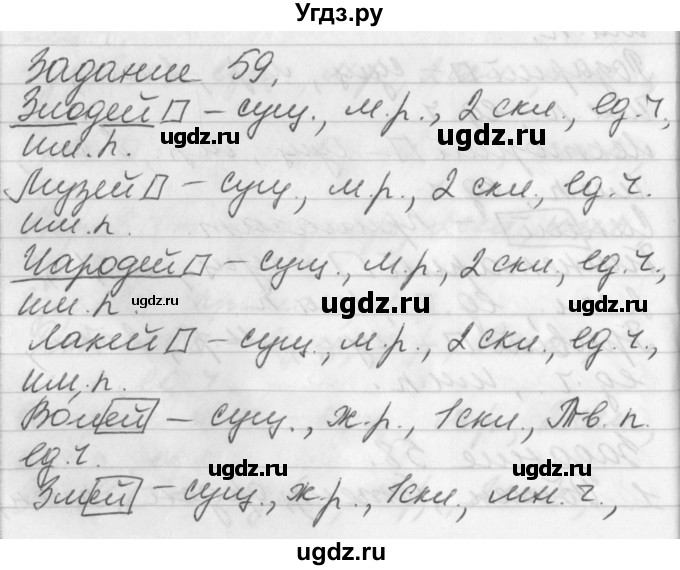 Угдз.ру
Задание 59.
Злодей□ – сущ., м.р., 2 скл., ед.ч.,
им.п.
Музей□ – сущ., м.р., 2 скл., ед.ч.
им.п.
Чародей□ – сущ., м.р., 2 скл., ед.ч.,
им.п.
Лакей□ – сущ., м.р., 2 скл., ед.ч.,
им.п.
Волей – сущ., ж.р., 1 скл., Тв.п.
ед.ч.
Змей – сущ., ж.р., 1 скл., мн.ч.,
ugdz.ru
ugdz.ru
ugdz.ru
ugdz.ru
ugdz.ru
ugdz.ru
ugdz.ru
ugdz.ru